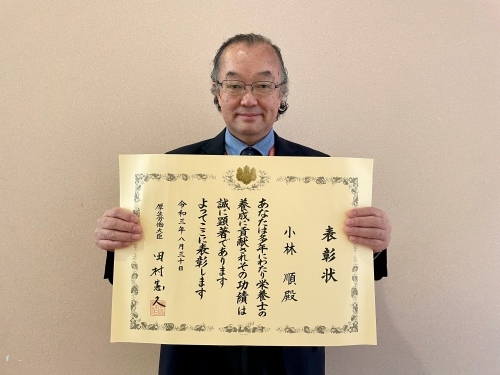 表彰状
小林 順 殿
あなたは多年にわたり栄養士の
養成に貢献されその功績は
誠に顕著であります
よってここに表彰します
令和三年八月三十日
厚生労働大臣 田村憲久